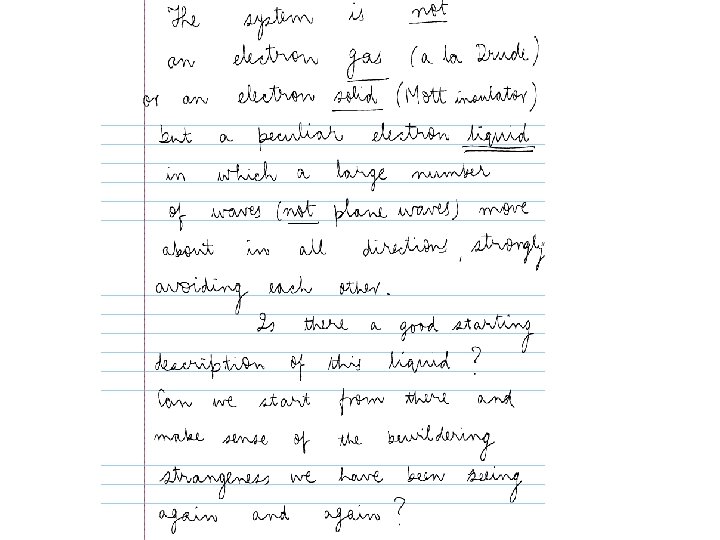 The system is not
an electron gas (a la Drude)
or an electron solid (Mott insulator)
but a peculiar electron liquid
in which a large number
of waves (not plane waves) move
about in all directions, strongly
avoiding each other.
Is there a good starting
description of this liquid?
Can we start from there and
make sense of the bewildering
strangeness we have been seeing
again and again?